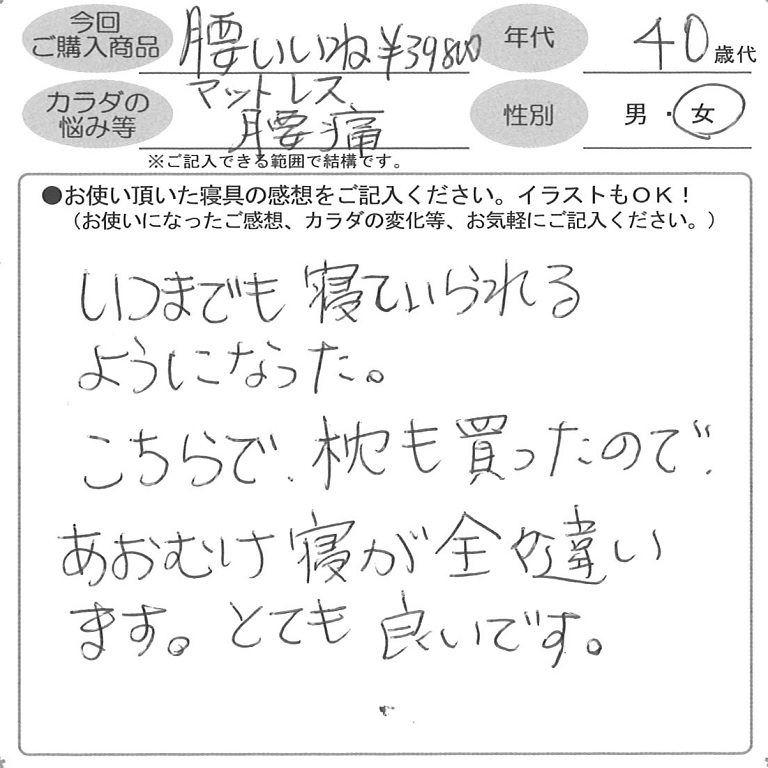 今回
ご購入商品
腰いいね¥39800
マットレス
年代
40歳代
カラダの
悩み等
腰痛
性別
男・女
※ご記入できる範囲で結構です。
●お使い頂いた寝具の感想をご記入ください。イラストもOK！
（お使いになったご感想、カラダの変化等、お気軽にご記入ください。）
いつまでも寝ていられる
ようになった。
こちらで、枕も買ったので、
あおむけ寝が全々違い
ます。とても良いです。